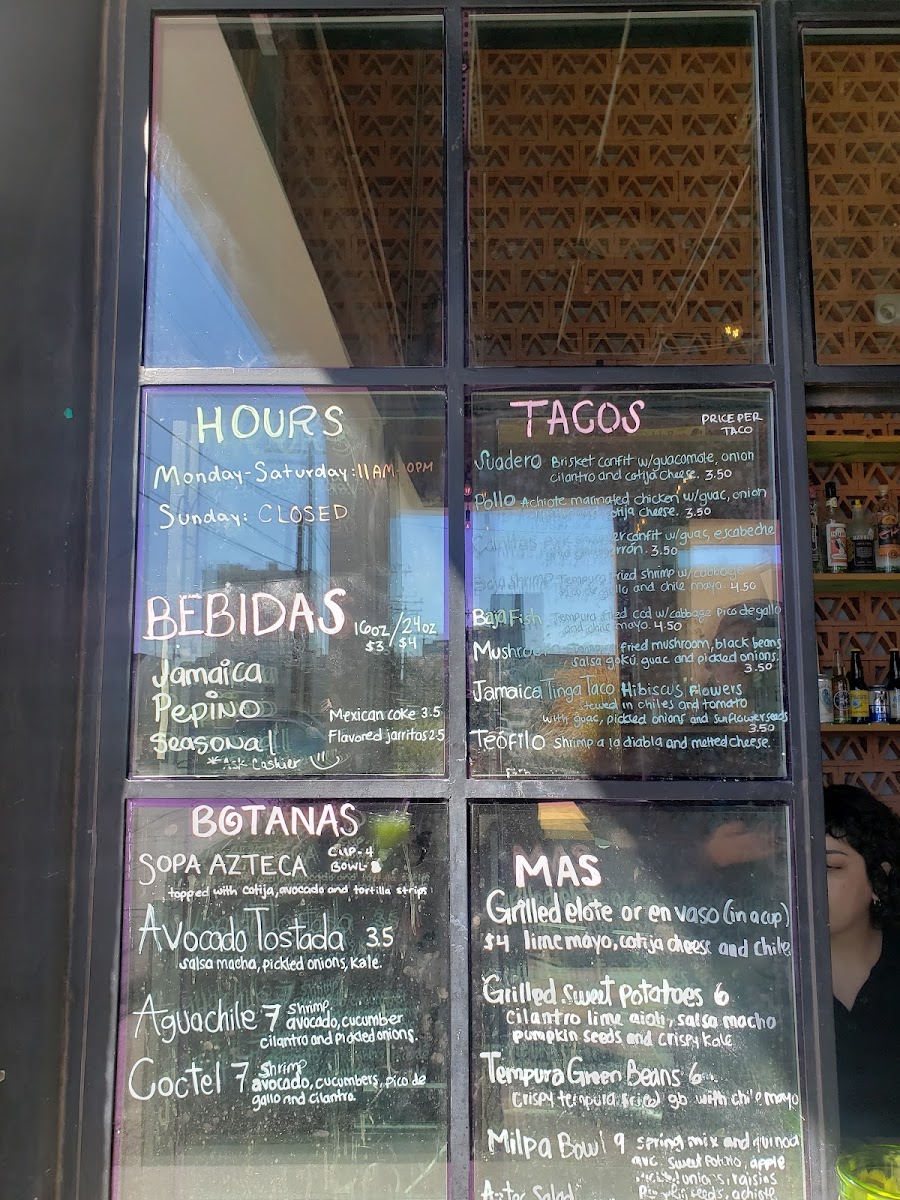 HOURS
Monday-Saturday: 11AM-10PM
Sunday: CLOSED
BEBIDAS
16oz/24oz
$3 $4
Jamaica
Pepino
Seasonal
*Ask Cashier
Mexican coke 3.5
Flavored jarritos 2.5
TACOS
PRICE PER
TACO
Suadero Brisket confit w/guacomole, onion
cilantro and cotija cheese. 3.50
Pollo Achiote marinated chicken w/guac, onion
cotija cheese. 3.50
confit w/guac, escabeche
3.50
Baja Shrimp Tempura fried shrimp w/cabbage
pico de gallo and chile mayo. 4.50
Baja Fish Tempura fried cod w/cabbage pico de gallo
and chile mayo. 4.50
fried mushroom, black beans
salsa goku, guac and pickled onions.
3.50
Jamaica Tinga Taco Hibiscus Flowers
Stewed in chiles and tomato
with guac, pickled onions and sunflower seeds
3.50
Teofilo shrimp a la diabla and melted cheese.
BOTANAS
SOPA AZTECA CUP-4
BOWL-8
topped with cotija, avocado and tortilla strips
Avocado Tostada 3.5
salsa macha, pickled onions, kale.
Aguachile 7 Shrimp
avocado, cucumber
cilantro and pickled onions.
Coctel 7 Shrimp
avocado, cucumbers, pico de
gallo and cilantro.
MAS
Grilled elote or en vaso (in a cup)
$4 lime mayo, cotija cheese and chile
Grilled sweet potatoes 6
cilantro lime aioli, salsa macho
pumpkin seeds and crispy kale
Tempura Green Beans 6
crispy tempura fried gb with chile mayo
Milpa Bowl 9 spring mix and quinoa
avc. sweet potato, apple
pickled onions, raisins